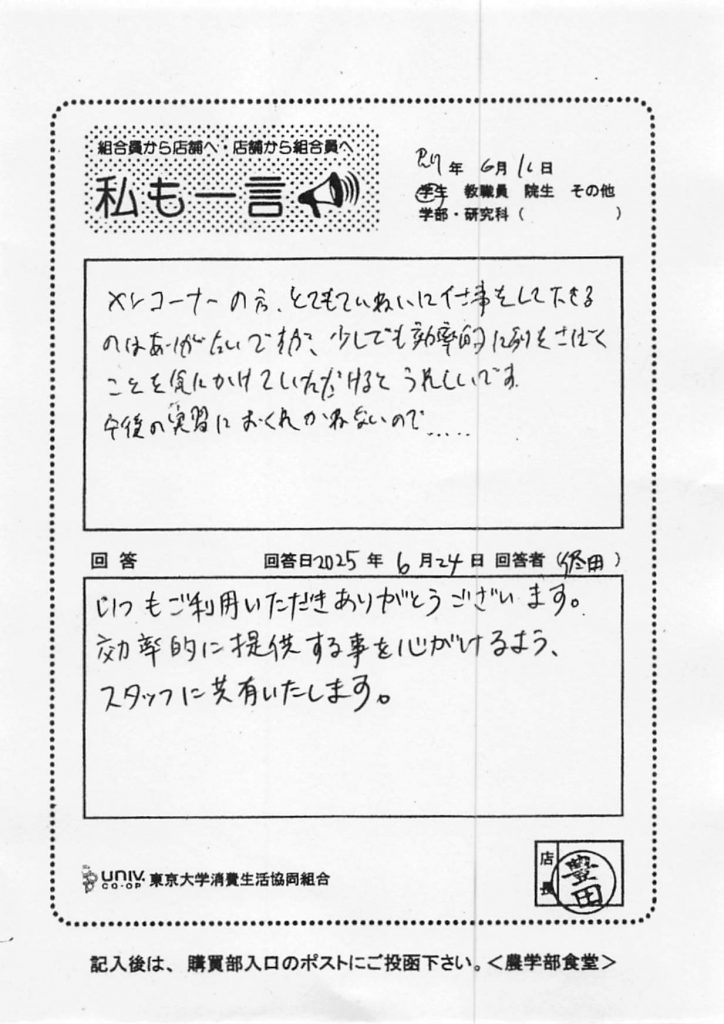 組合員から店舗へ・店舗から組合員へ
私も一言
R7年 6月16日
学生 教職員 院生 その他
学部・研究科（ ）
メンコーナーの方、とてもていねいに仕事をして下さる
のはありがたいですが、少しでも効率的に列をさばく
ことを気にかけていただけるとうれしいです
午後の実習におくれかねないので.....
回答 回答日2025年 6月24日 回答者（ 田）
いつもご利用いただきありがとうございます。
効率的に提供する事を心がけるよう、
スタッフに共有いたします。
UNIV. CO-OP 東京大学消費生活協同組合
店長 豊田
記入後は、購買部入口のポストにご投函下さい。＜農学部食堂＞